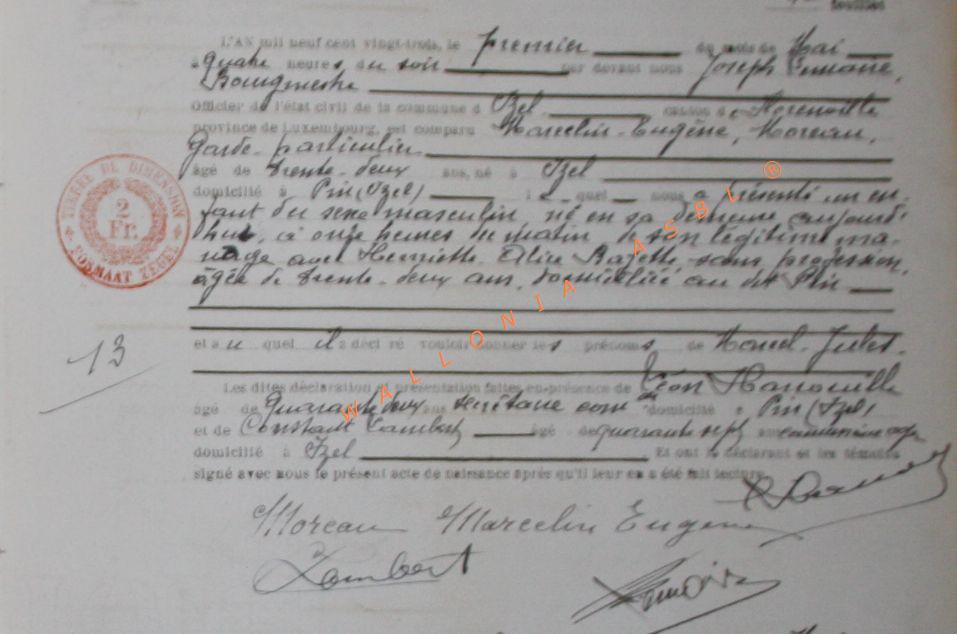 L'AN mil neuf cent vingt-trois, le premier du mois de Mai
à quatre heures du soir par devant nous Joseph
Bourgmestre
Officier de l'état civil de la commune d'Izel canton de Florenville
province de Luxembourg, est comparu Marcelin-Eugène, Moreau,
Garde-particulier
âgé de trente-deux ans, né à Izel
domicilié à Pin (Izel) lequel nous a présenté un en-
fant du sexe masculin, né en sa demeure aujourd'
hui, à onze heures du matin de son légitime ma-
riage avec Henriette-Alice sans profession,
âgée de trente-deux ans, domiciliée au dit Pin
et auquel il a déclaré vouloir donner les prénoms de Marcel-Jules.
13
Les dites déclaration et présentation faites en présence de Léon
âgé de quarante deux ans secrétaire com al domicilié à Pin (Izel)
et de Constant Lambert âgé de quarante sept ans
domicilié à Izel Et ont le déclarant et les témoins
signé avec nous le présent acte de naissance après qu'il leur en a été fait lecture.
Moreau Marcelin Eugène
Lambert
TIMBRE DE DIMENSION
2
Fr.
FORMAAT ZEGEL
WALLONIA ASBL ®